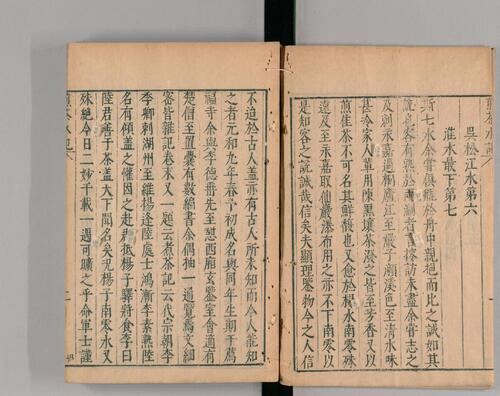 煎茶水記
吳松江水第六
淮水最下第七
斯七水余嘗俱瓶於舟中親挹而比之誠如其
說也客有熟於兩浙者言搜訪未盡余嘗志之
及刺永嘉過桐廬江至嚴子瀨溪色至清水味
甚冷家人輩用陳黑壞茶潑之皆至芳香又以
煎佳茶不可名其鮮馥也又愈於楊子南零殊
遠及至永嘉取仙巖瀑布用之亦不下南零以
是知客之說誠哉信矣夫顯理鑒物今之人信
不迨於古人蓋亦有古人所未知而今人能知
之者元和九年春予初成名與同年生期于薦
福寺余與李德垂先至憩西廂玄鑒室會適有
楚僧至置囊有數編書余偶抽一通覽焉文細
密皆雜記卷末又一題云煮茶記云代宗朝李
季卿刺湖州至維揚逢陸處士鴻漸李素熟陸
名有傾蓋之懽因之赴郡抵楊子驛將食李曰
陸君善于茶蓋天下聞名矣況楊子南零水又
殊絕今日二妙千載一遇可曠之乎命軍士謹
煎茶水記